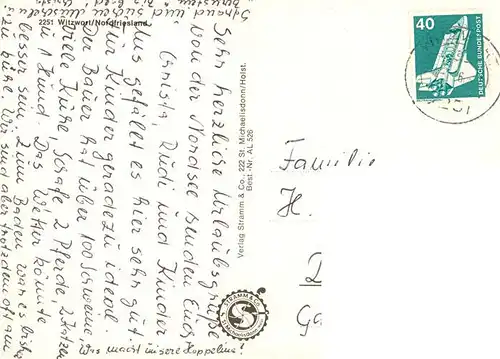 Sehr herzliche Urlaubsgrüße
von der Nordsee senden Euch
Christa, Rudi und Kinder
Uns gefällt es hier sehr gut.
Für Kinder geradezu ideal.
Der Bauer hat über 100 Schweine,
viele Kühe, Schafe, 2 Pferde, 2 Katzen
u. 1 Hund. Das Wetter könnte
besser sein. Zum Baden war es bisher
zu kühl. Wir sind aber trotzdem oft am
Was macht unsere Koppelma
2251 Witzwort/Nordfriesland
Verlag Stramm & Co., 222 St. Michaelisdonn/Holst.
Best.-Nr. AL 526
STRAMM & CO.
St. Michaelisdonn
40
DEUTSCHE BUNDESPOST
Familie
H.